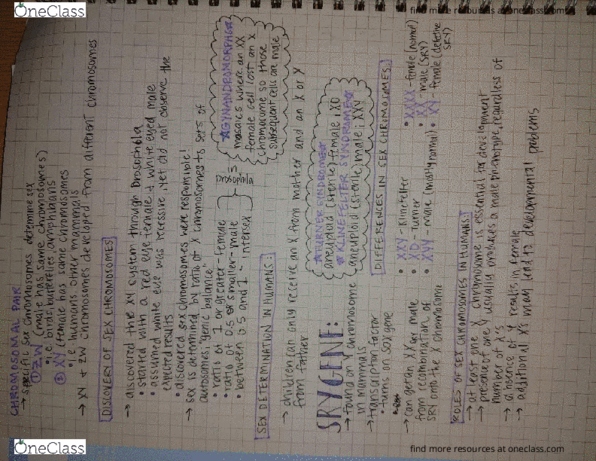 OneClass
find more resources at oneclass.com
CHROMOSOMAL PAIR
→ specific sex chromosomes determine sex
① ZW (male has same chromosomes)
• i.e. birds, butterflies, amphibians
② XY (female has same chromosomes)
• i.e. humans, other mammals
→ XY & ZW chromosomes developed from different chromosomes
DISCOVERY OF SEX CHROMOSOMES
→ discovered the XY system through Drosophila
• started with a red eye female & white eyed male
assumed white eye was recessive, yet did not observe the
expected results
• discovered sex chromosomes were responsible!
→ sex is determined by ratio of X chromosomes to sets of
autosomes, "genic balance"
• ratio of 1 or greater - female
• ratio of 0.5 or smaller - male
• between 0.5 and 1 - intersex
Drosophila
*GYNANDROMORPHS*
mosaics where an XX
female cell lost an X
chromosome so those
subsequent cells are male
SEX DETERMINATION IN HUMANS:
→ children can only receive an X from mother and an X or Y
from father
SRY GENE:
→ found on Y chromosome
in mammals
→ transcription factor
• turns on sox gene
→ can get an XX male
from recombination of
SRY onto the X chromosome
*TURNER SYNDROME*
aneuploid (sterile) female; XO
*KLINEFELTER SYNDROME*
aneuploid (sterile) male; XXY
DIFFERENCES IN SEX CHROMOSOMES:
• XXY - Klinefelter
• XO - Turner
• XYY - male (mostly normal)
• XXXX - female (normal)
• XX - male (SRY)
• XY - female (defective
SRY)
ROLES OF SEX CHROMOSOMES IN HUMANS:
→ at least one X chromosome is essential for development
→ presence of one Y usually produces a male phenotype, regardless of
number of X's
→ absence of Y results in female
→ additional X's may lead to developmental problems
OneClass
find more resources at oneclass.com